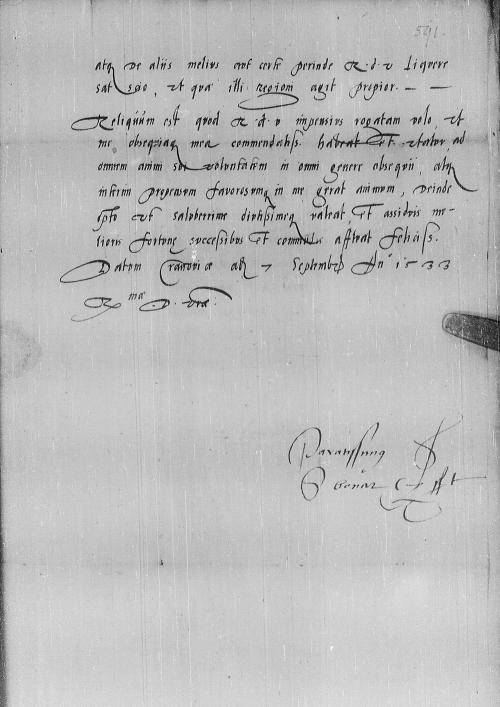 591.
atq de aliis melius aut certe perinde R. d. v liquere
sat scio, ut qui illi regioni agit propior. — —
Reliquum est quod R. d. v impensius rogatam volo, ut
me obsequiaq mea commendatiss. habeat et utatur, ad
omnem animi sui voluntatem in omni genere obsequii, atq
interim propensum favorosumq in me gerat animum, deinde
opto ut saluberrime diutissimeq valeat, et assiduis me-
lioris fortune successibus et commodis affluat feliciss.
Datum Cracoviæ ad 7 Septembr An° 1533
R mæ. D. vræ.
Paratissimus